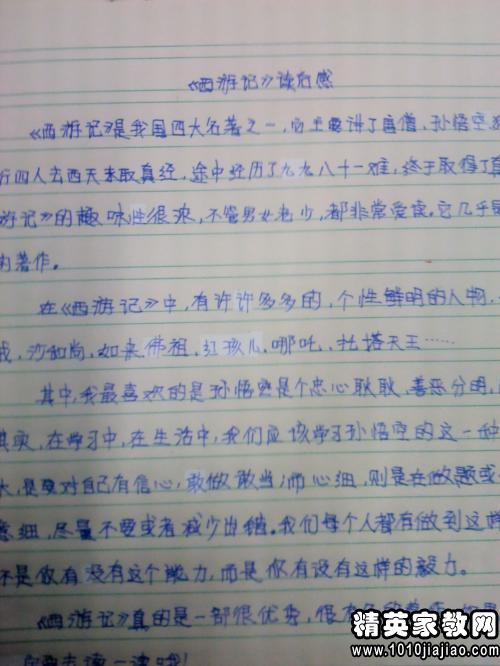 《西游记》读后感
《西游记》是我国四大名著之一,它主要讲了唐僧,孙悟空
行四人去西天来取真经,途中经历了九九八十一难,终于取得了
游记》的趣味性很浓,不管男女老少,都非常爱读。它几乎
的著作。
在《西游记》中,有许许多多的,个性鲜明的人物,
戒,沙和尚,如来佛祖,红孩儿,哪吒,托塔天王……
其中,我最喜欢的是孙悟空是个忠心耿耿、善恶分明,
其实,在学习中,在生活中,我们应该学习孙悟空的这一种
大,是要对自己有信心,敢做敢当;而心细,则是在做题或
意细,尽量不要或者减少出错。我们每个人都有做到这样
不是你有没有这个能力,而是你有没有这样的毅力。
《西游记》真的是一部很优秀,很
精英家教网
www.1010jiajiao.com